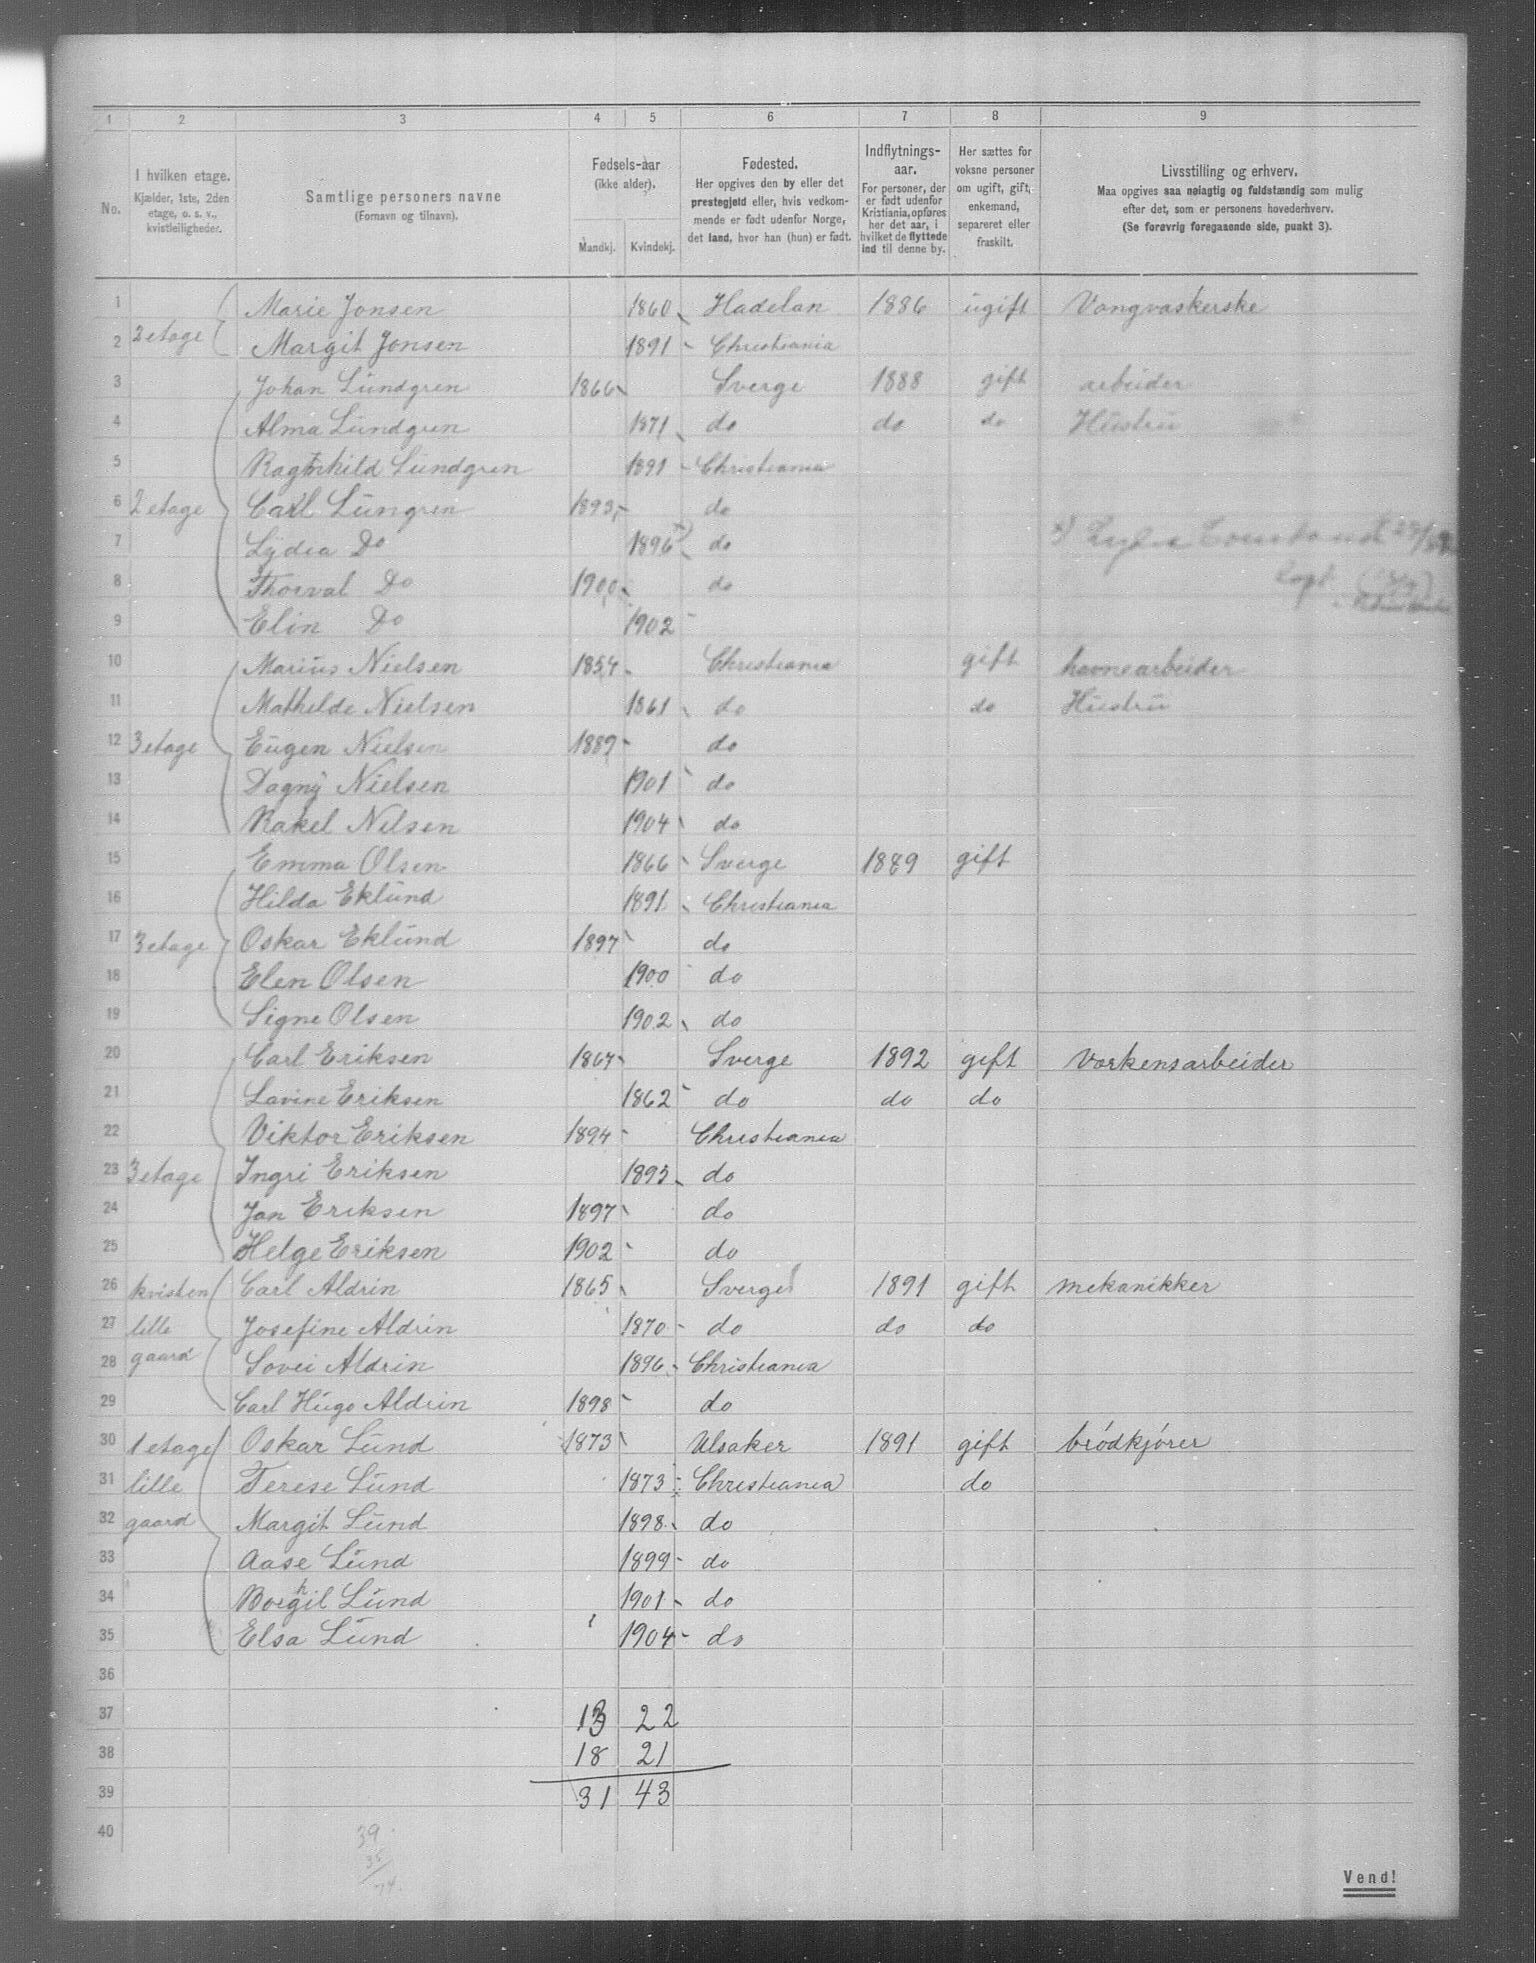 1 2 3 4 5 6 7 8 9
No. I hvilken etage. Kjælder, 1ste, 2den etage, o. s. v., kvistleiligheder. Samtlige personers navne (Fornavn og tilnavn). Fødsels-aar (ikke alder). Mandkj. Kvindekj. Fødested. Her opgives den by eller det prestegjeld eller, hvis vedkommende er født udenfor Norge, det land, hvor han (hun) er født. Indflytnings-aar. For personer, der er født udenfor Kristiania, opføres her det aar, i hvilket de flyttede ind til denne by. Her sættes for voksne personer om ugift, gift, enkemand, separeret eller fraskilt. Livsstilling og erhverv. Maa opgives saa nøiagtig og fuldstændig som mulig efter det, som er personens hovederhverv. (Se forøvrig foregaaende side, punkt 3).
1 Marie Jonsen 1860 Hadelan 1886 ugift Vangvaskerske
2 2 etage Margit Jonsen 1891 Christiania
3 Johan Lundgren 1866 Sverge 1888 gift arbeider
4 Alma Lundgren 1871 do do do Hustru
5 Ragnhild Lundgren 1891 Christiania
6 2 etage Carl Lungren 1893 do
7 Lydia Do 1896 x) do x) Lydia
8 Thorval Do 1900 do
9 Elin Do 1902
10 Marius Nielsen 1854 Christiania gift havnearbeider
11 Mathilde Nielsen 1861 do do Hustru
12 3 etage Eugen Nielsen 1889 do
13 Dagny Nielsen 1901 do
14 Rakel Nilsen 1904 do
15 Emma Olsen 1866 Sverge 1889 gift
16 Hilda Eklund 1891 Christiania
17 3 etage Oskar Eklund 1897 do
18 Elen Olsen 1900 do
19 Signe Olsen 1902 do
20 Carl Eriksen 1867 Sverge 1892 gift Vorkensarbeider
21 Lavine Eriksen 1862 do do do
22 Viktor Eriksen 1894 Christiania
23 3 etage Ingri Eriksen 1895 do
24 Jon Eriksen 1897 do
25 Helge Eriksen 1902 do
26 kvisten Carl Aldrin 1865 Sverge 1891 gift mekanikker
27 lille Josefine Aldrin 1870 do do do
28 gaard Sovei Aldrin 1896 Christiania
29 Carl Hugo Aldrin 1898 do
30 1 etage Oskar Lund 1873 Ulsaker 1891 gift brödkjörer
31 lille Terese Lund 1873 Christiania do
32 gaard Margit Lund 1898 do
33 Aase Lund 1899 do
34 Borghil Lund 1901 do
35 Elsa Lund 1904 do
36
37 13 22
38 18 21
39 31 43
40
39
35
74
Vend!